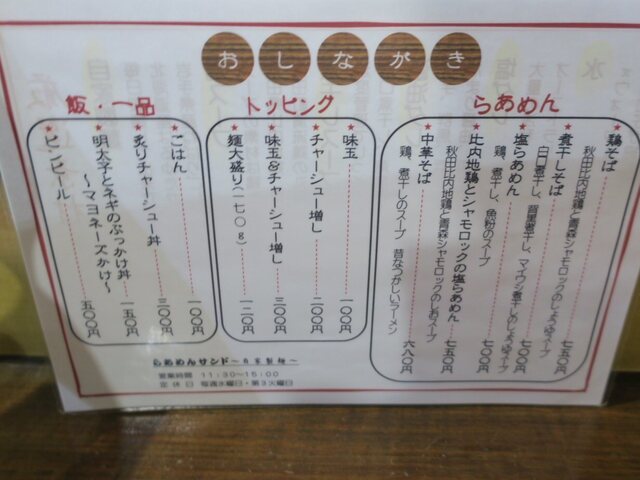 おしながき
らあめん
★鶏そば 七五〇円
秋田比内地鶏と青森シャモロックのしょうゆスープ
★煮干しそば 七〇〇円
白口煮干し、背黒煮干し、マイワシ煮干しのしょうゆスープ
★塩らあめん 七〇〇円
鶏、煮干し、魚粉のスープ
★比内地鶏とシャモロックの塩らあめん 七五〇円
秋田比内地鶏と青森シャモロックのしおスープ
★中華そば 六八〇円
鶏、煮干しのスープ 昔なつかしいラーメン
トッピング
★味玉 一〇〇円
★チャーシュー増し 二〇〇円
★味玉&チャーシュー増し 三〇〇円
★麺大盛り(一七〇g) 一二〇円
飯・一品
★ごはん 一〇〇円
★炙りチャーシュー丼 三〇〇円
★明太子とネギのぶっかけ丼 一五〇円
～マヨネーズかけ～
★ビンビール 五〇〇円
らあめんサンド～自家製麺～
営業時間 11:30~15:00
定休日 毎週水曜日・第3火曜日